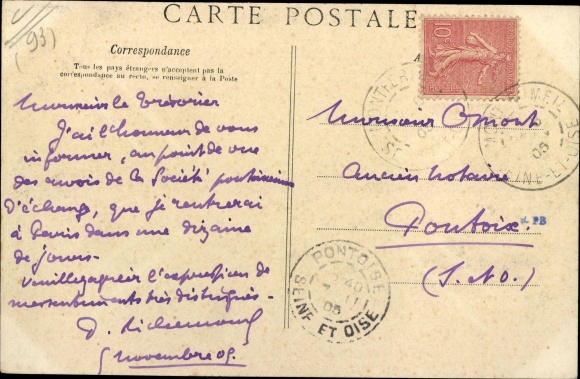 (93)
CARTE POSTALE
Correspondance
Tous les pays étrangers n'acceptent pas la
correspondance au recto, se renseigner à la Poste
Monsieur le Trésorier
J'ai l'honneur de vous
informer, au point de vue
des envois de la Société pontoisienne
d'échange, que je rentrerai
à Paris dans une dizaine
de jours.
Veuillez agréer l'expression de
mes sentiments très distingués.
D. Richemond
5 novembre 05.
10
Monsieur Omont
Ancien notaire
Pontoise
(S.&O.)
PB
PONTOISE
SEINE ET OISE
05